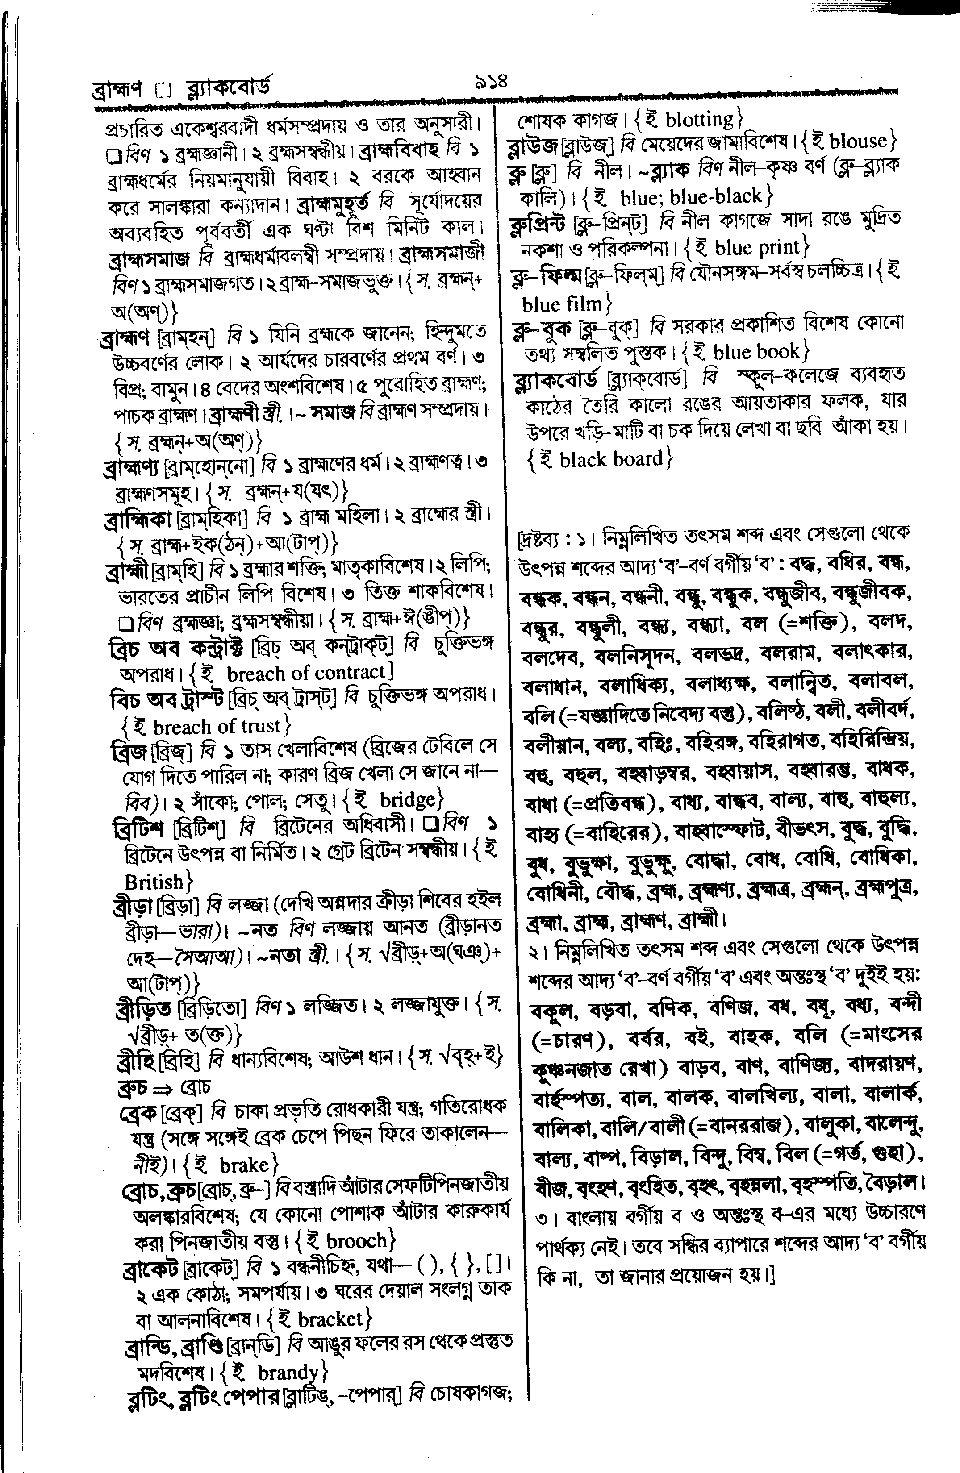 ব্রাহ্মণ [] ব্ল্যাকবোর্ড
৯১৪
প্রচারিত একেশ্বরবাদী ধর্মসম্প্রদায় ও তার অনুসারী।
❏ বিণ ১ ব্রহ্মজ্ঞানী। ২ ব্রহ্মসম্বন্ধীয়। ব্রাহ্মবিবাহ বি ১
ব্রাহ্মধর্মের নিয়মানুযায়ী বিবাহ। ২ বরকে আহ্বান
করে সালঙ্কারা কন্যাদান। ব্রাহ্মমুহূর্ত বি সূর্যোদয়ের
অব্যবহিত পূর্ববর্তী এক ঘণ্টা বিশ মিনিট কাল।
ব্রাহ্মসমাজ বি ব্রাহ্মধর্মাবলম্বী সম্প্রদায়। ব্রাহ্মসমাজী
বিণ ১ ব্রাহ্মসমাজগত। ২ ব্রাহ্ম-সমাজভুক্ত। {স. ব্রহ্মন্+
অ(অণ্)}
ব্রাহ্মণ [ব্রাম্‌হন্] বি ১ যিনি ব্রহ্মকে জানেন; হিন্দুমতে
উচ্চবর্ণের লোক। ২ আর্যদের চারবর্ণের প্রথম বর্ণ। ৩
বিপ্র; বামুন। ৪ বেদের অংশবিশেষ। ৫ পুরোহিত ব্রাহ্মণ;
পাচক ব্রাহ্মণ। ব্রাহ্মণী স্ত্রী. । ~ সমাজ বি ব্রাহ্মণ সম্প্রদায়।
{স. ব্রহ্মন্+অ(অণ্)}
ব্রাহ্মণ্য [ব্রাম্‌হোন্‌নো] বি ১ ব্রাহ্মণের ধর্ম। ২ ব্রাহ্মণত্ব। ৩
ব্রাহ্মণসমূহ। {স. ব্রহ্মন্+য(যৎ)}
ব্রাহ্মিকা [ব্রাম্‌হিকা] বি ১ ব্রাহ্ম মহিলা। ২ ব্রাহ্মের স্ত্রী।
{স. ব্রাহ্ম+ইক(ঠন্)+আ(টাপ্)}
ব্রাহ্মী [ব্রাম্‌হি] বি ১ ব্রহ্মার শক্তি; মাতৃকাবিশেষ। ২ লিপি;
ভারতের প্রাচীন লিপি বিশেষ। ৩ তিক্ত শাকবিশেষ।
❏ বিণ ব্রহ্মজ্ঞা; ব্রহ্মসম্বন্ধীয়া। {স. ব্রাহ্ম+ঈ(ঙীপ্)}
ব্রিচ অব কন্ট্রাক্ট [ব্রিচ্ অব্ কন্‌ট্রাক্‌ট] বি চুক্তিভঙ্গ
অপরাধ। {ই breach of contract]
বিচ অব ট্রাস্ট [ব্রিচ্ অব্ ট্রাস্‌ট] বি চুক্তিভঙ্গ অপরাধ।
{ই breach of trust}
ব্রিজ [ব্রিজ্] বি ১ তাস খেলাবিশেষ (ব্রিজের টেবিলে সে
যোগ দিতে পারিল না; কারণ ব্রিজ খেলা সে জানে না—
বিব)। ২ সাঁকো; পোল; সেতু। {ই bridge}
ব্রিটিশ [ব্রিটিশ্] বি ব্রিটেনের অধিবাসী। ❏ বিণ ১
ব্রিটেনে উৎপন্ন বা নির্মিত। ২ গ্রেট ব্রিটেন সম্বন্ধীয়। {ই
British}
ব্রীড়া [ব্রিড়া] বি লজ্জা (দেখি অন্নদার ক্রীড়া শিবের হইল
ব্রীড়া—ভারা)। ~নত বিণ লজ্জায় আনত (ব্রীড়ানত
দেহ—সৈআআ)। ~নতা স্ত্রী. । {স. √ব্রীড়্+অ(ঘঞ্)+
আ(টাপ্)}
ব্রীড়িত [ব্রিড়িতো] বিণ ১ লজ্জিত। ২ লজ্জাযুক্ত। {স.
√ব্রীড়্+ ত(ক্ত)}
ব্রীহি [ব্রিহি] বি ধান্যবিশেষ; আউশ ধান। {স. √বৃহ্+ই}
ব্রুচ ⇒ ব্রোচ
ব্রেক [ব্রেক্] বি চাকা প্রভৃতি রোধকারী যন্ত্র; গতিরোধক
যন্ত্র (সঙ্গে সঙ্গেই ব্রেক চেপে পিছন ফিরে তাকালেন—
নীই)। {ই brake}
ব্রোচ, ব্রুচ [ব্রোচ্, ব্রু-] বি বস্ত্রাদি আঁটার সেফটিপিনজাতীয়
অলঙ্কারবিশেষ; যে কোনো পোশাক আঁটার কারুকার্য
করা পিনজাতীয় বস্তু। {ই brooch}
ব্রাকেট [ব্রাকেট্] বি ১ বন্ধনীচিহ্ন, যথা— ( ), { }, [ ]।
২ এক কোঠা; সমপর্যায়। ৩ ঘরের দেয়াল সংলগ্ন তাক
বা আলনাবিশেষ। {ই bracket}
ব্রান্ডি, ব্রাণ্ডি [ব্রান্‌ডি] বি আঙুর ফলের রস থেকে প্রস্তুত
মদবিশেষ। {ই brandy}
ব্লটিং, ব্লটিং পেপার [ব্লটিঙ্, -পেপার্] বি চোষকাগজ;
শোষক কাগজ। {ই blotting}
ব্লাউজ [ব্লাউজ্] বি মেয়েদের জামাবিশেষ। {ই blouse}
ব্লু [ব্লু] বি নীল। ~ব্ল্যাক বিণ নীল-কৃষ্ণ বর্ণ (ব্লু-ব্ল্যাক
কালি)। {ই blue; blue-black}
ব্লুপ্রিন্ট [ব্লু-প্রিন্‌ট] বি নীল কাগজে সাদা রঙে মুদ্রিত
নকশা ও পরিকল্পনা। {ই blue print}
ব্লু-ফিল্ম [ব্লু-ফিল্‌ম্] বি যৌনসঙ্গম-সর্বস্ব চলচ্চিত্র। {ই
blue film}
ব্লু-বুক [ব্লু-বুক্] বি সরকার প্রকাশিত বিশেষ কোনো
তথ্য সম্বলিত পুস্তক। {ই blue book}
ব্ল্যাকবোর্ড [ব্ল্যাক্‌বোর্ড] বি স্কুল-কলেজে ব্যবহৃত
কাঠের তৈরি কালো রঙের আয়তাকার ফলক, যার
উপরে খড়ি-মাটি বা চক দিয়ে লেখা বা ছবি আঁকা হয়।
{ই black board}
[দ্রষ্টব্য : ১। নিম্নলিখিত তৎসম শব্দ এবং সেগুলো থেকে
উৎপন্ন শব্দের আদ্য ‘ব’-বর্ণ বর্গীয় ‘ব’ : বদ্ধ, বধির, বন্ধ,
বন্ধক, বন্ধন, বন্ধনী, বন্ধু, বন্ধুক, বন্ধুজীব, বন্ধুজীবক,
বন্ধুর, বন্ধুলী, বন্ধ্য, বন্ধ্যা, বল (=শক্তি), বলদ,
বলদেব, বলনিসূদন, বলভদ্র, বলরাম, বলাৎকার,
বলাধান, বলাধিক্য, বলাধ্যক্ষ, বলান্বিত, বলাবল,
বলি (=যজ্ঞাদিতে নিবেদ্য বস্তু), বলিষ্ঠ, বলী, বলীবর্দ,
বলীয়ান, বল্য, বহিঃ, বহিরঙ্গ, বহিরাগত, বহিরিন্দ্রিয়,
বহু, বহুল, বহ্বাড়ম্বর, বহ্বায়াস, বহ্বারম্ভ, বাধক,
বাধা (=প্রতিবন্ধ), বাধ্য, বান্ধব, বাল্য, বাহু, বাহুল্য,
বাহ্য (=বাহিরের), বাহ্বাস্ফোট, বীভৎস, বুদ্ধ, বুদ্ধি,
বুধ, বুভুক্ষা, বুভুক্ষু, বোদ্ধা, বোধ, বোধি, বোধিকা,
বোধিনী, বৌদ্ধ, ব্রহ্ম, ব্রহ্মণ্য, ব্রহ্মত্র, ব্রহ্মন্, ব্রহ্মপুত্র,
ব্রহ্মা, ব্রাহ্ম, ব্রাহ্মণ, ব্রাহ্মী।
২। নিম্নলিখিত তৎসম শব্দ এবং সেগুলো থেকে উৎপন্ন
শব্দের আদ্য ‘ব’-বর্ণ বর্গীয় ‘ব’ এবং অন্তঃস্থ ‘ব’ দুইই হয়:
বকুল, বড়বা, বণিক, বণিজ, বধ, বধূ, বধ্য, বন্দী
(=চারণ), বর্বর, বই, বাহক, বলি (=মাংসের
কুঞ্চনজাত রেখা) বাড়ব, বাণ, বাণিজ্য, বাদরায়ণ,
বার্হস্পত্য, বাল, বালক, বালখিল্য, বালা, বালার্ক,
বালিকা, বালি/বালী (=বানররাজ), বালুকা, বালেন্দু,
বাল্য, বাষ্প, বিড়াল, বিন্দু, বিম্ব, বিল (=গর্ত, গুহা),
বীজ, বৃংহণ, বৃংহিত, বৃহৎ, বৃহন্নলা, বৃহস্পতি, বৈড়াল।
৩। বাংলায় বর্গীয় ব ও অন্তঃস্থ ব-এর মধ্যে উচ্চারণে
পার্থক্য নেই। তবে সন্ধির ব্যাপারে শব্দের আদ্য ‘ব’ বর্গীয়
কি না, তা জানার প্রয়োজন হয়।]